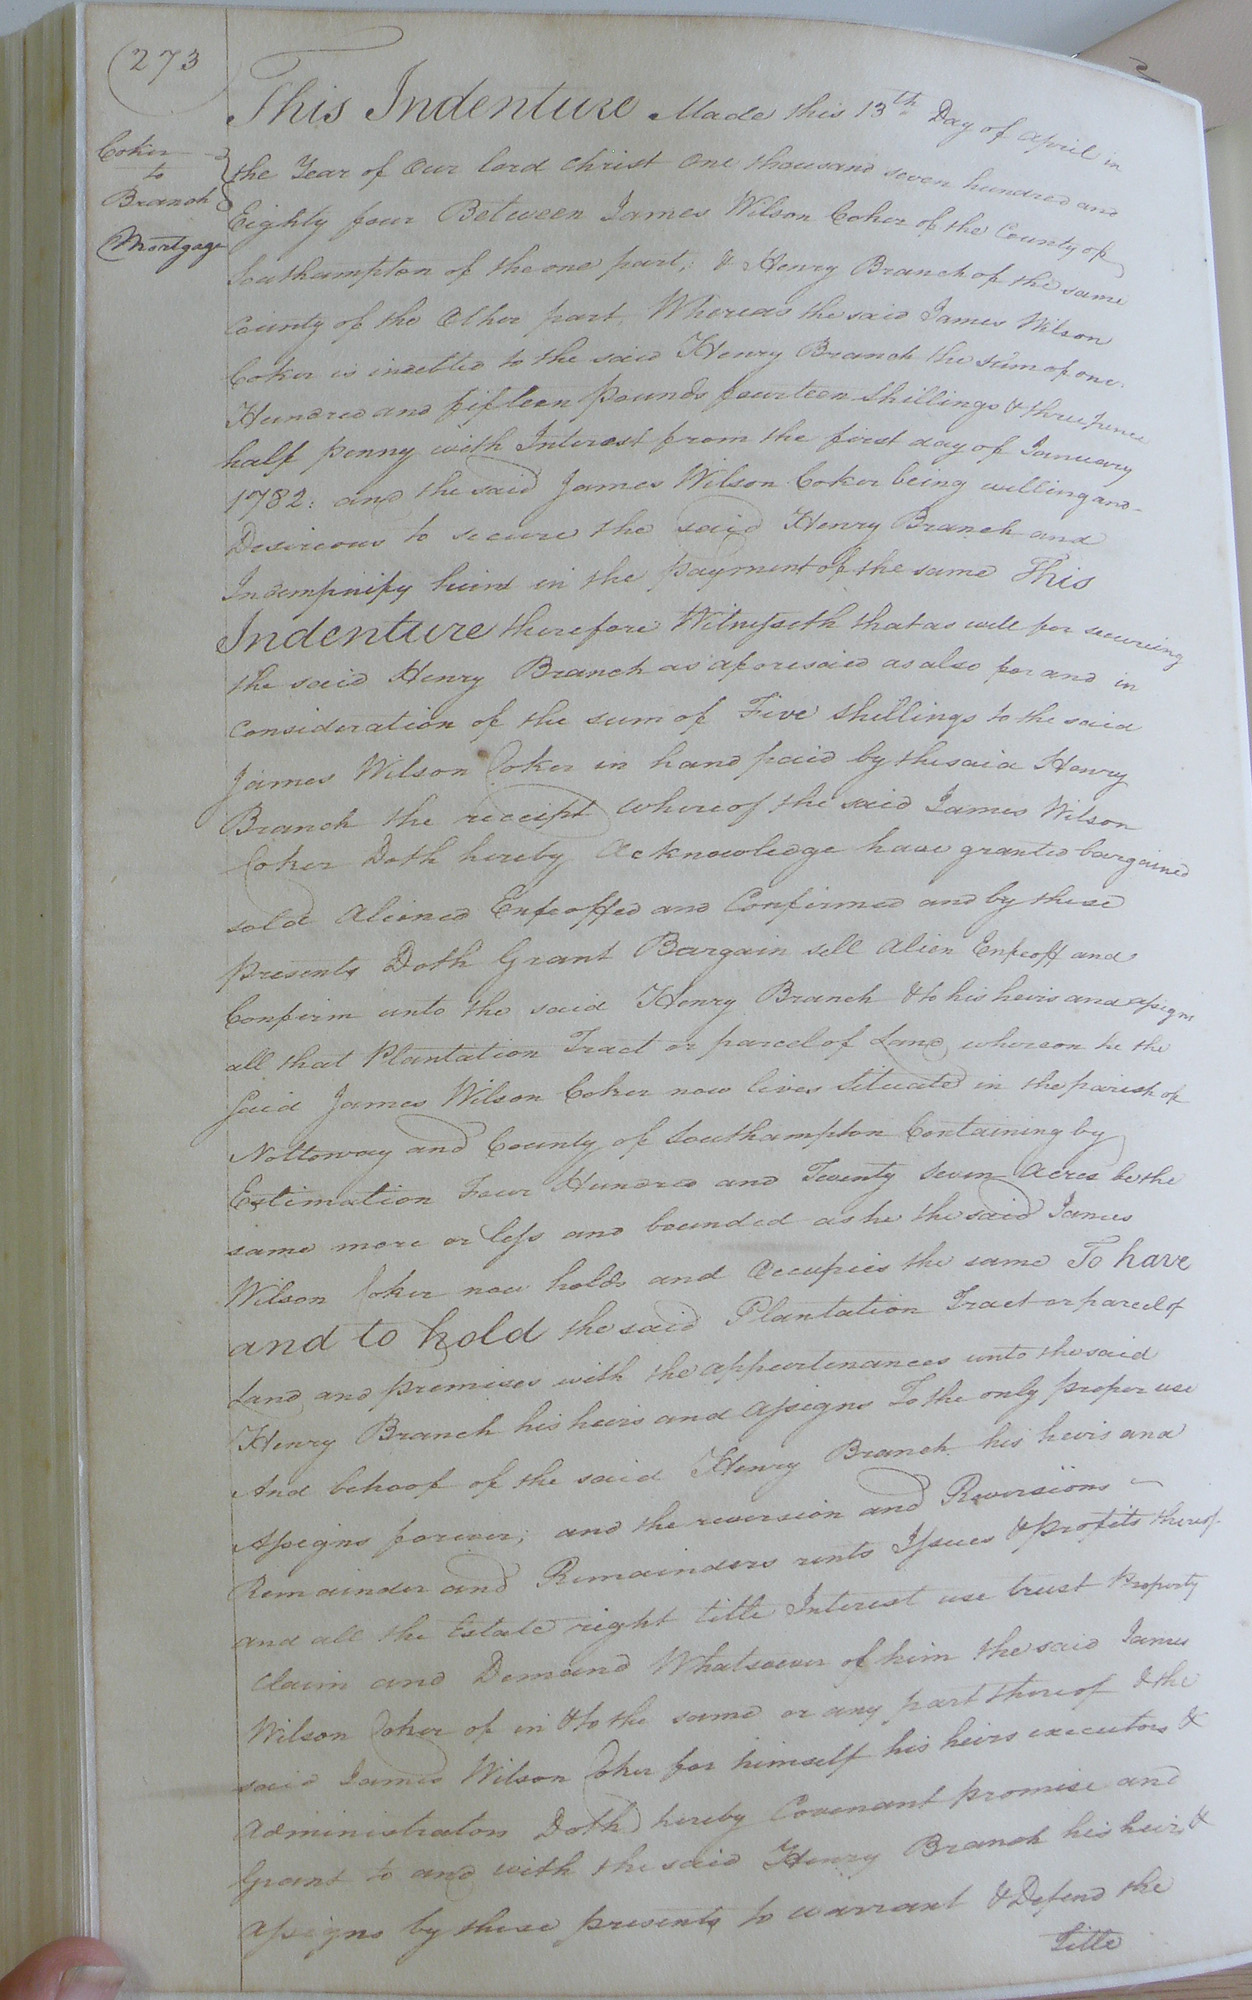 273
Coker
to
Branch
Mortgage
This Indenture Made this 13th Day of April in
the Year of Our lord Christ One thousand seven hundred and
Eighty four Between James Wilson Coker of the County of
Southampton of the one part; & Henry Branch of the same
County of the Other part, Whereas the said James Wilson
Coker is indebted to the said Henry Branch the sum of one
Hundred and fifteen Pounds fourteen Shillings & three pence
half penny with Interest from the first day of January
1782: and the said James Wilson Coker being willing and
Desireous to secure the said Henry Branch and
Indempnify him in the payment of the same This
Indenture therefore Witnesseth that as well for securing
the said Henry Branch as aforesaid as also for and in
Consideration of the sum of Five Shillings to the said
James Wilson Coker in hand paid by the said Henry
Branch the receipt whereof the said James Wilson
Coker Doth hereby Acknowledge have granted bargained
sold Aliened Enfeoffed and Confirmed and by these
presents Doth Grant Bargain sell Alien Enfeoff and
Confirm unto the said Henry Branch & to his heirs and assigns
all that Plantation Tract or parcel of Land whereon he the
said James Wilson Coker now lives situated in the parish of
Nottoway and County of Southampton Containing by
Estimation Four Hundred and Twenty Seven Acres be the
same more or less and bounded as he the said James
Wilson Coker now holds and Occupies the same To have
and to hold the said Plantation Tract or parcel of
Land and premises with the appurtenances unto the said
Henry Branch his heirs and assigns To the only proper use
And behoof of the said Henry Branch his heirs and
Assigns forever; and the reversion and Reversions
Remainder and Remainders rents Issues & profits thereof
and all the Estate right title Interest use trust Property
Claim and Demand Whatsoever of him the said James
Wilson Coker of in & to the same or any part thereof & the
said James Wilson Coker for himself his heirs executors &
Administrators Doth hereby Covenant promise and
Grant to and with the said Henry Branch his heirs &
Assigns by these presents to warrant & Defend the
Title